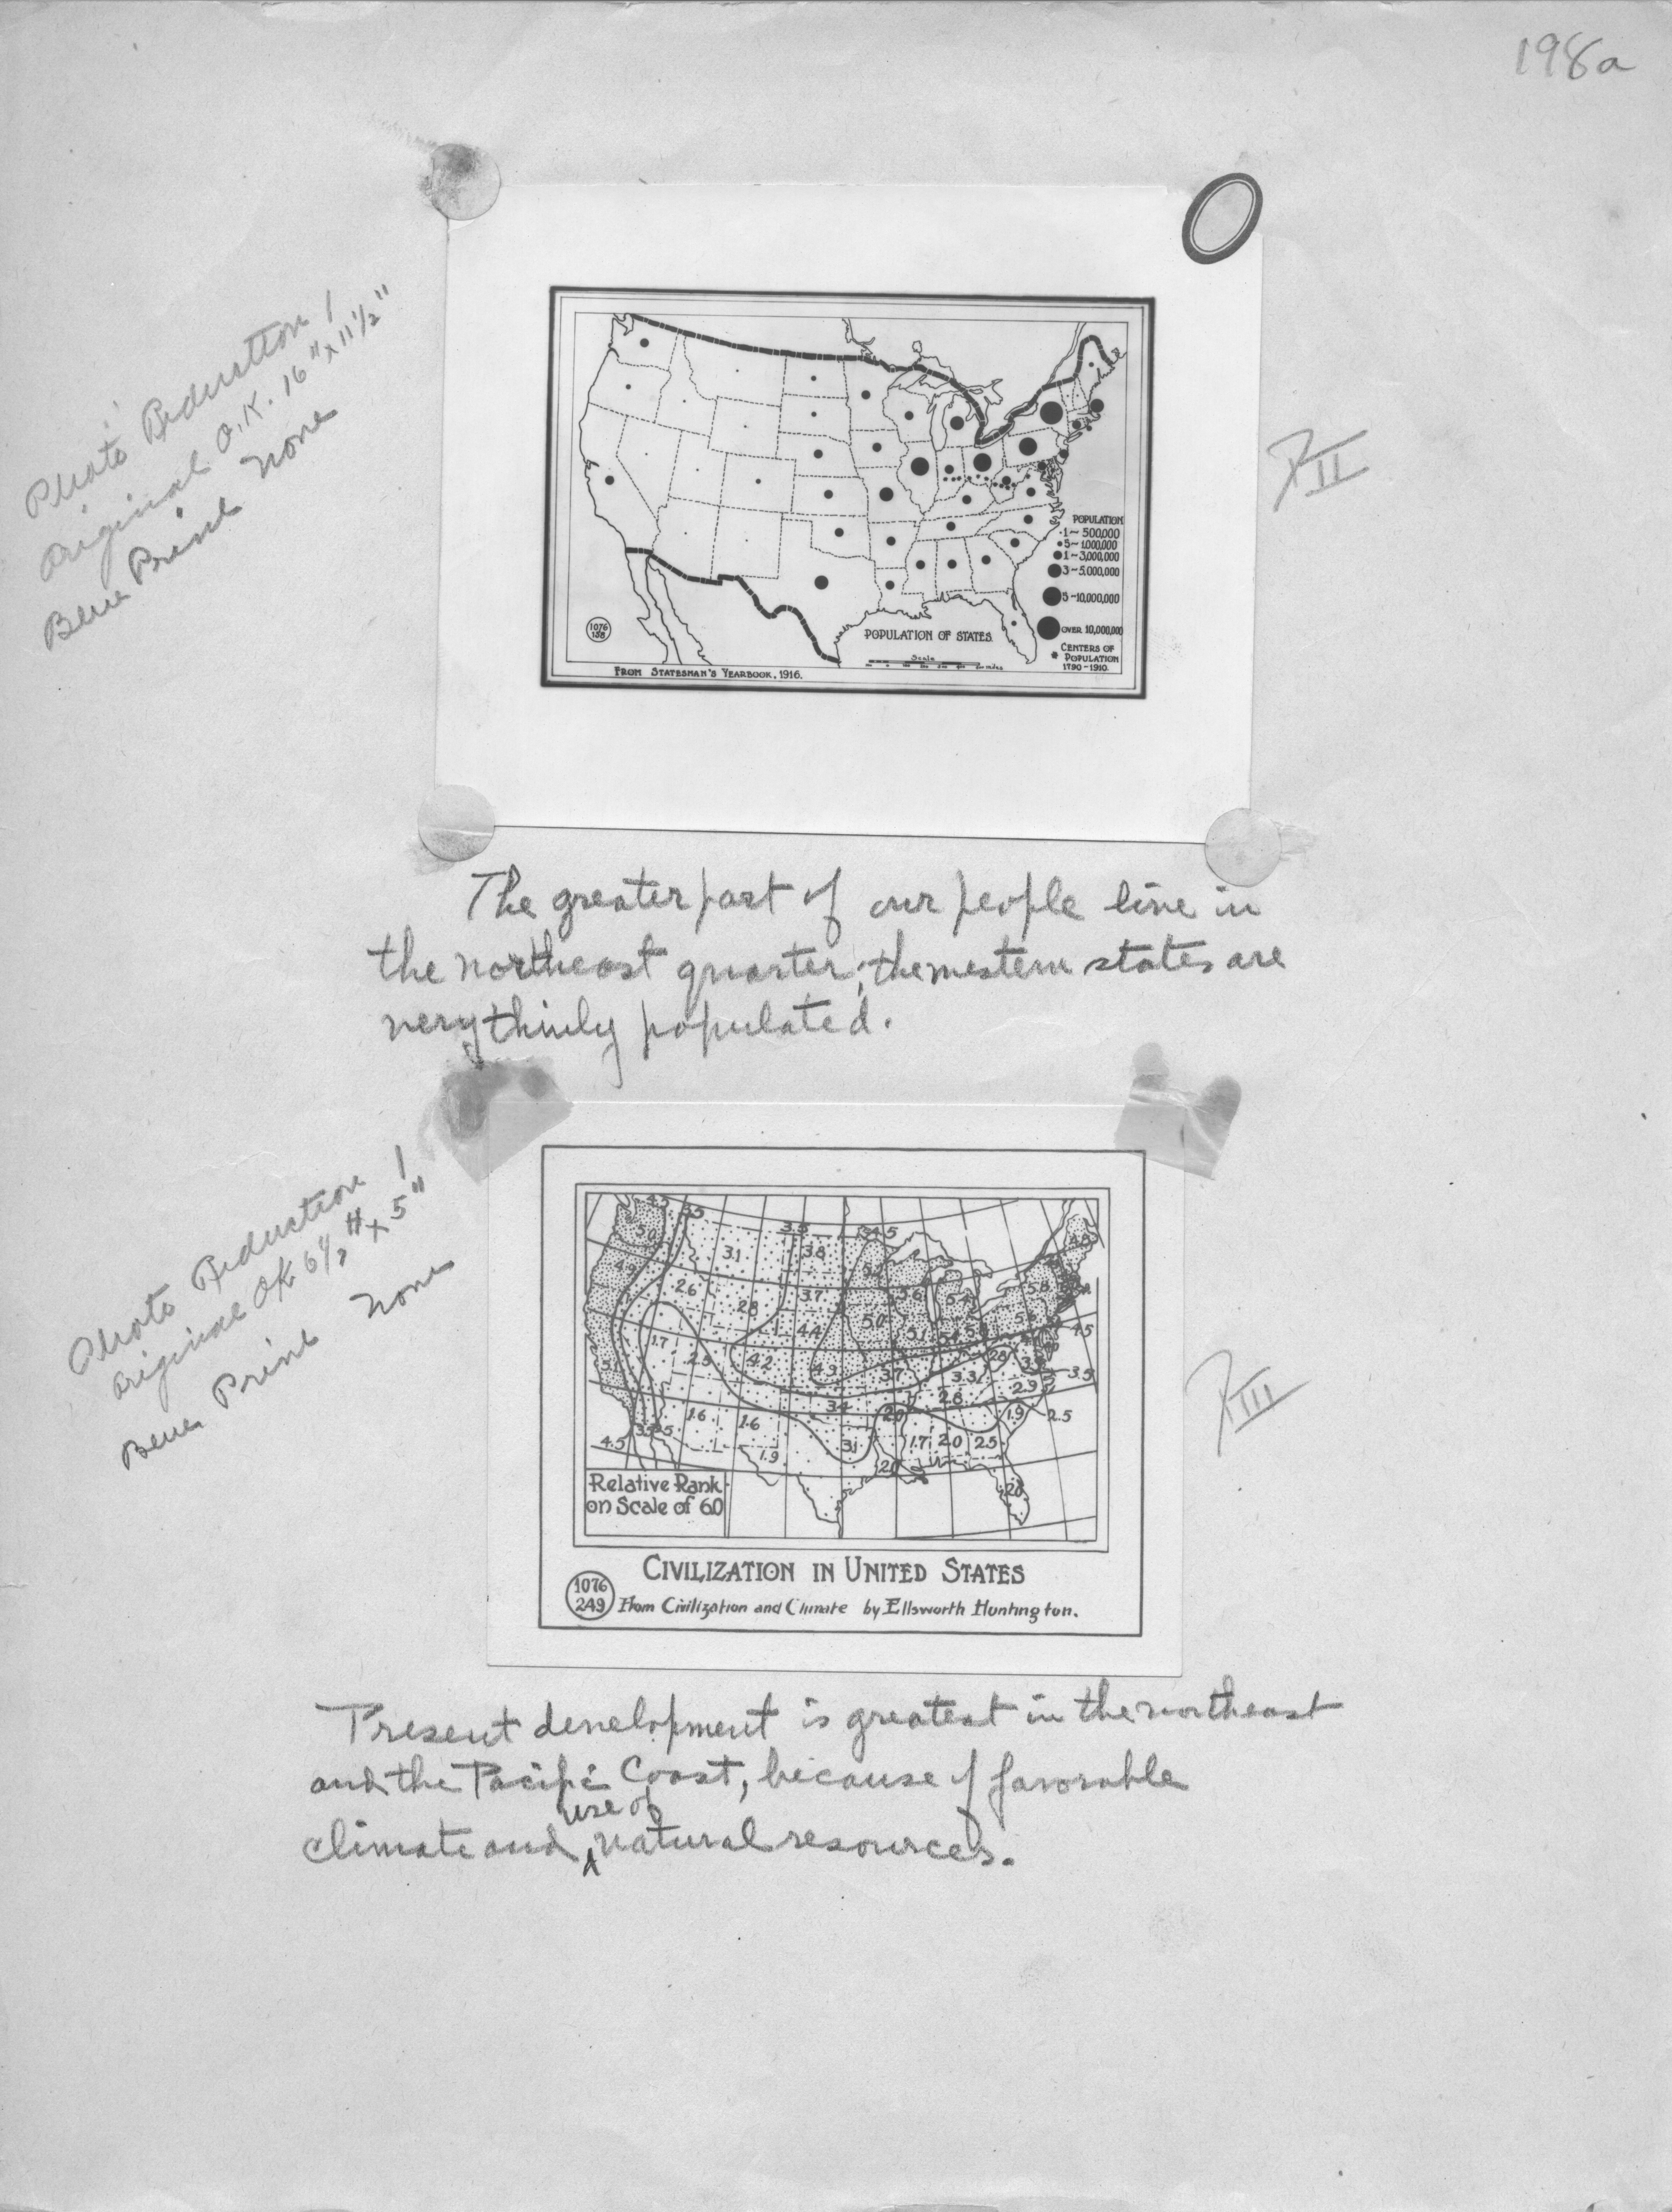 198a
Photo Reduction!
Original O.K. 16"x11½"
Blue Print None
POPULATION
.1-500,000
5-1,000,000
1-3,000,000
3-5,000,000
5-10,000,000
OVER 10,000,000
CENTERS OF
POPULATION
1790-1910.
POPULATION OF STATES
Scale
1076
138
FROM STATESMAN'S YEARBOOK, 1916.
II
The greater part of our people live in
the northeast quarter; the western states are
very thinly populated.
Photo Reduction!
Original OK 6½"x5"
Blue Print None
4.5 3.5 3.5 4.5
5.0 3.1 3.8 4.8
4.9 2.6 2.8 3.7 5.6 5.4 5.8
1.7 4.4 5.0 5.1 4.5
5.1 2.5 4.2 4.9 3.7 3.3 2.8 3.5
2.9
1.6 1.6 3.4 2.8 1.9 2.5
4.5 1.9 3.1 1.7 2.0 2.5
2.0
Relative Rank
on Scale of 60
CIVILIZATION IN UNITED STATES
1076
249
From Civilization and Climate by Ellsworth Huntington.
III
Present development is greatest in the northeast
and the Pacific Coast, because of favorable
use of
climate and natural resources.